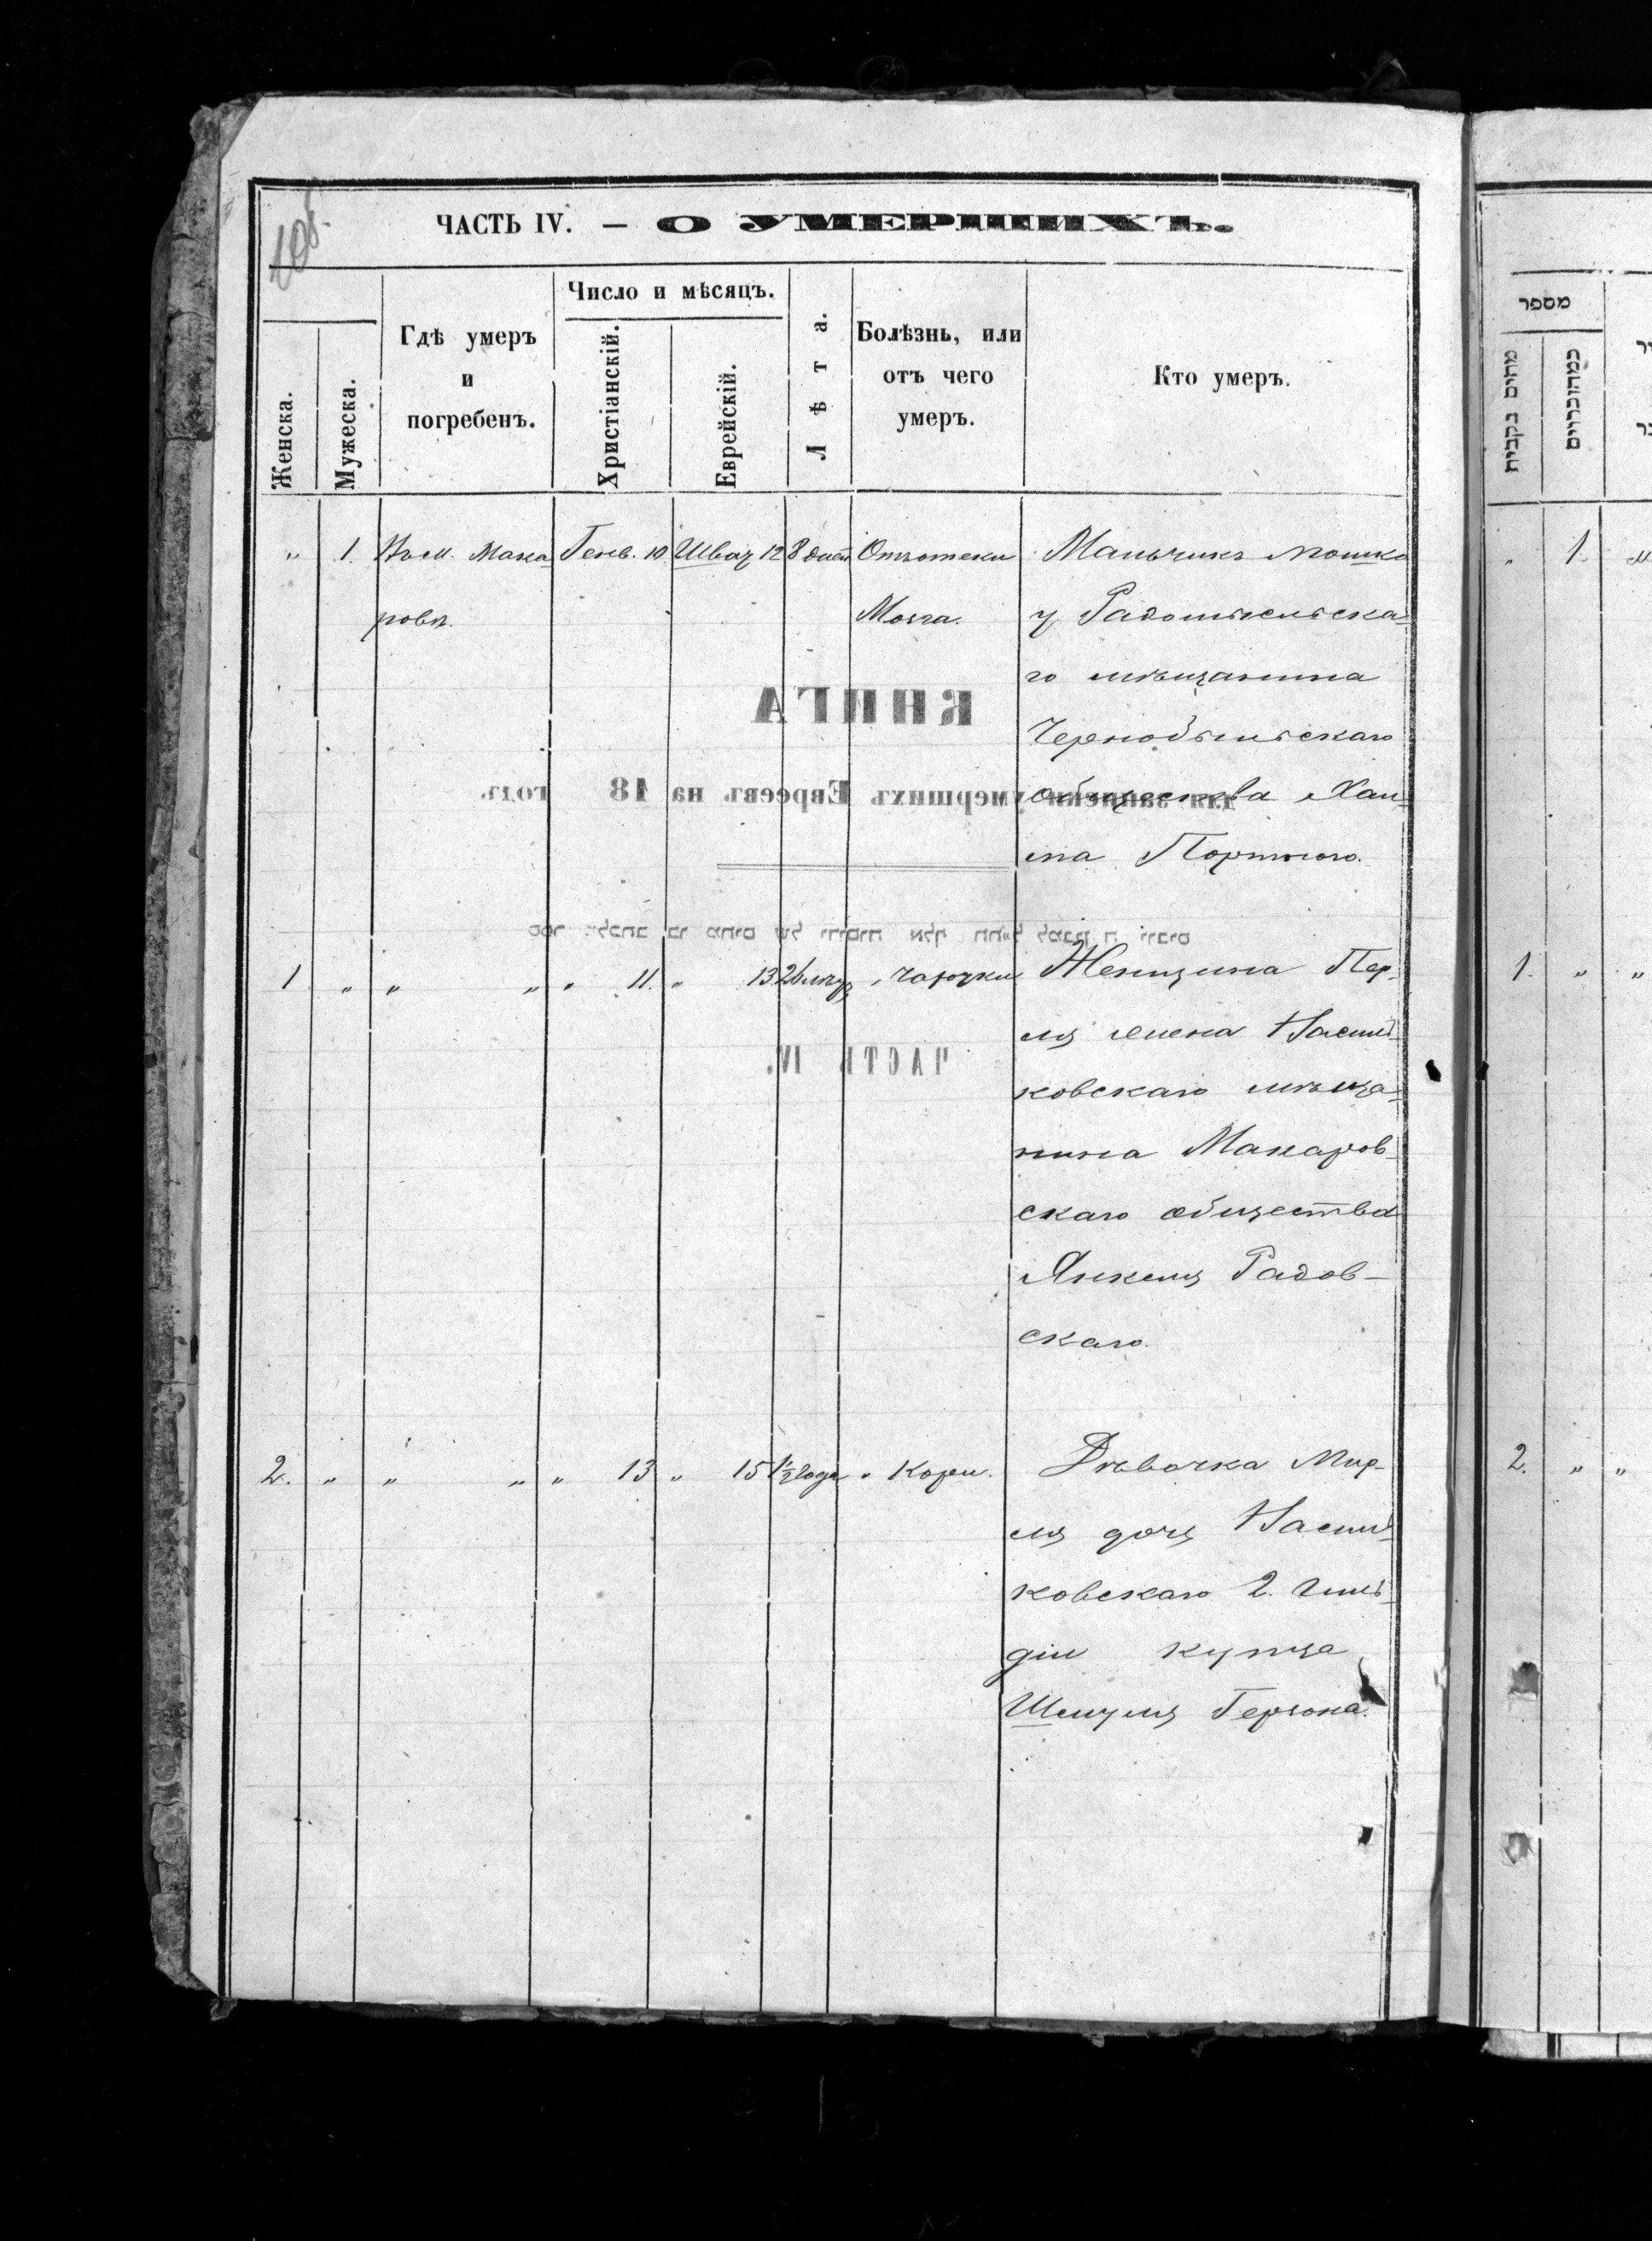 ЧАСТЬ IV. — О УМЕРШИХЪ.
Женска.
Мужеска.
Гдѣ умеръ
и
погребенъ.
Число и мѣсяцъ.
Христіанскій.
Еврейскій.
Лѣта.
Болѣзнь, или
отъ чего
умеръ.
Кто умеръ.
„ 1. Въ м. Мака Генв. 10 Шват 12 8 дней Отъ отеки Мальчикъ Мошко
ровѣ. Мозга. у Радомысльска-
го мѣщанина
Чернобыльскаго
общества Хаи-
ма Портного.
1 „ „ „ „ 11. „ 13 26 лѣтъ „ Чахотки Женщина Пер-
ля жена Василь-
ковскаго мѣща-
нина Макаров-
скаго общества
Янкеля Радов-
скаго.
2. „ „ „ „ 13 „ 15 1½ года „ Кори. Дѣвочка Мир-
ля дочь Василь-
ковскаго 2. гиль-
діи купца
Шмуля Герзона.
КНИГА
для записки умершихъ Евреевъ на 18 годъ.
ЧАСТЬ IV.
מספר
1.
1. „ „
2. „ „